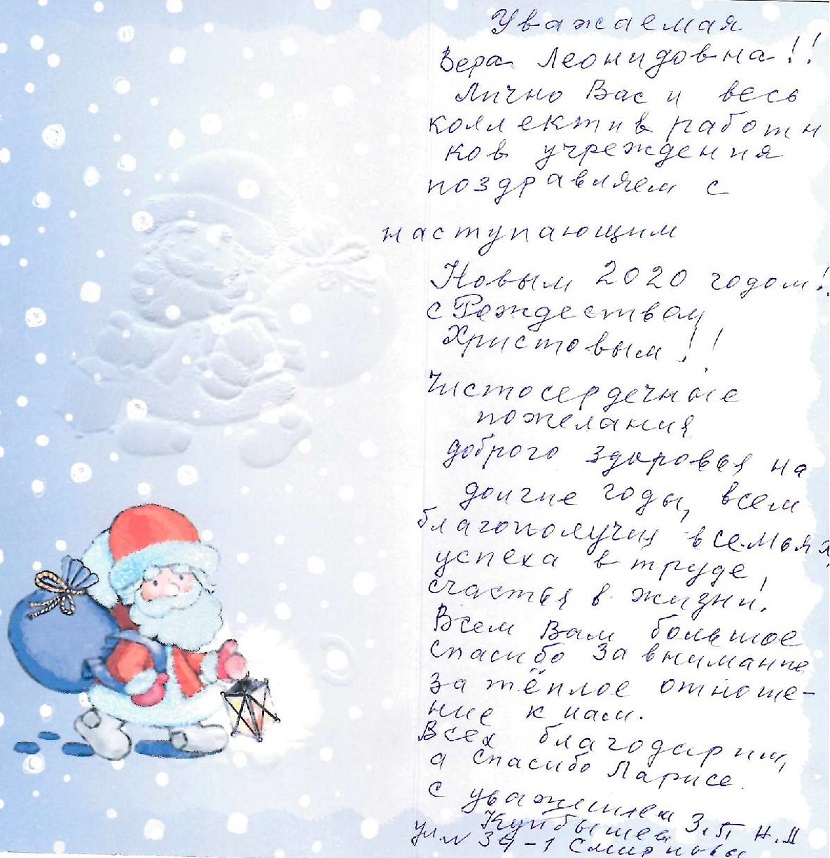 Уважаемая
Вера Леонидовна!!
Лично Вас и весь
коллектив работни
ков учреждения
поздравляем с
наступающим
Новым 2020 годом!
с Рождеством
Христовым!!
Чистосердечные
пожелания
доброго здоровья на
долгие годы, всем
благополучия в семьях,
успеха в труде,
счастья в жизни.
Всем Вам большое
спасибо за внимание
за тёплое отноше-
ние к нам.
Всех благодарим,
а спасибо Ларисе.
с уважением З.П Н.Д
Куйбышева
ул 34-1 Смирновы